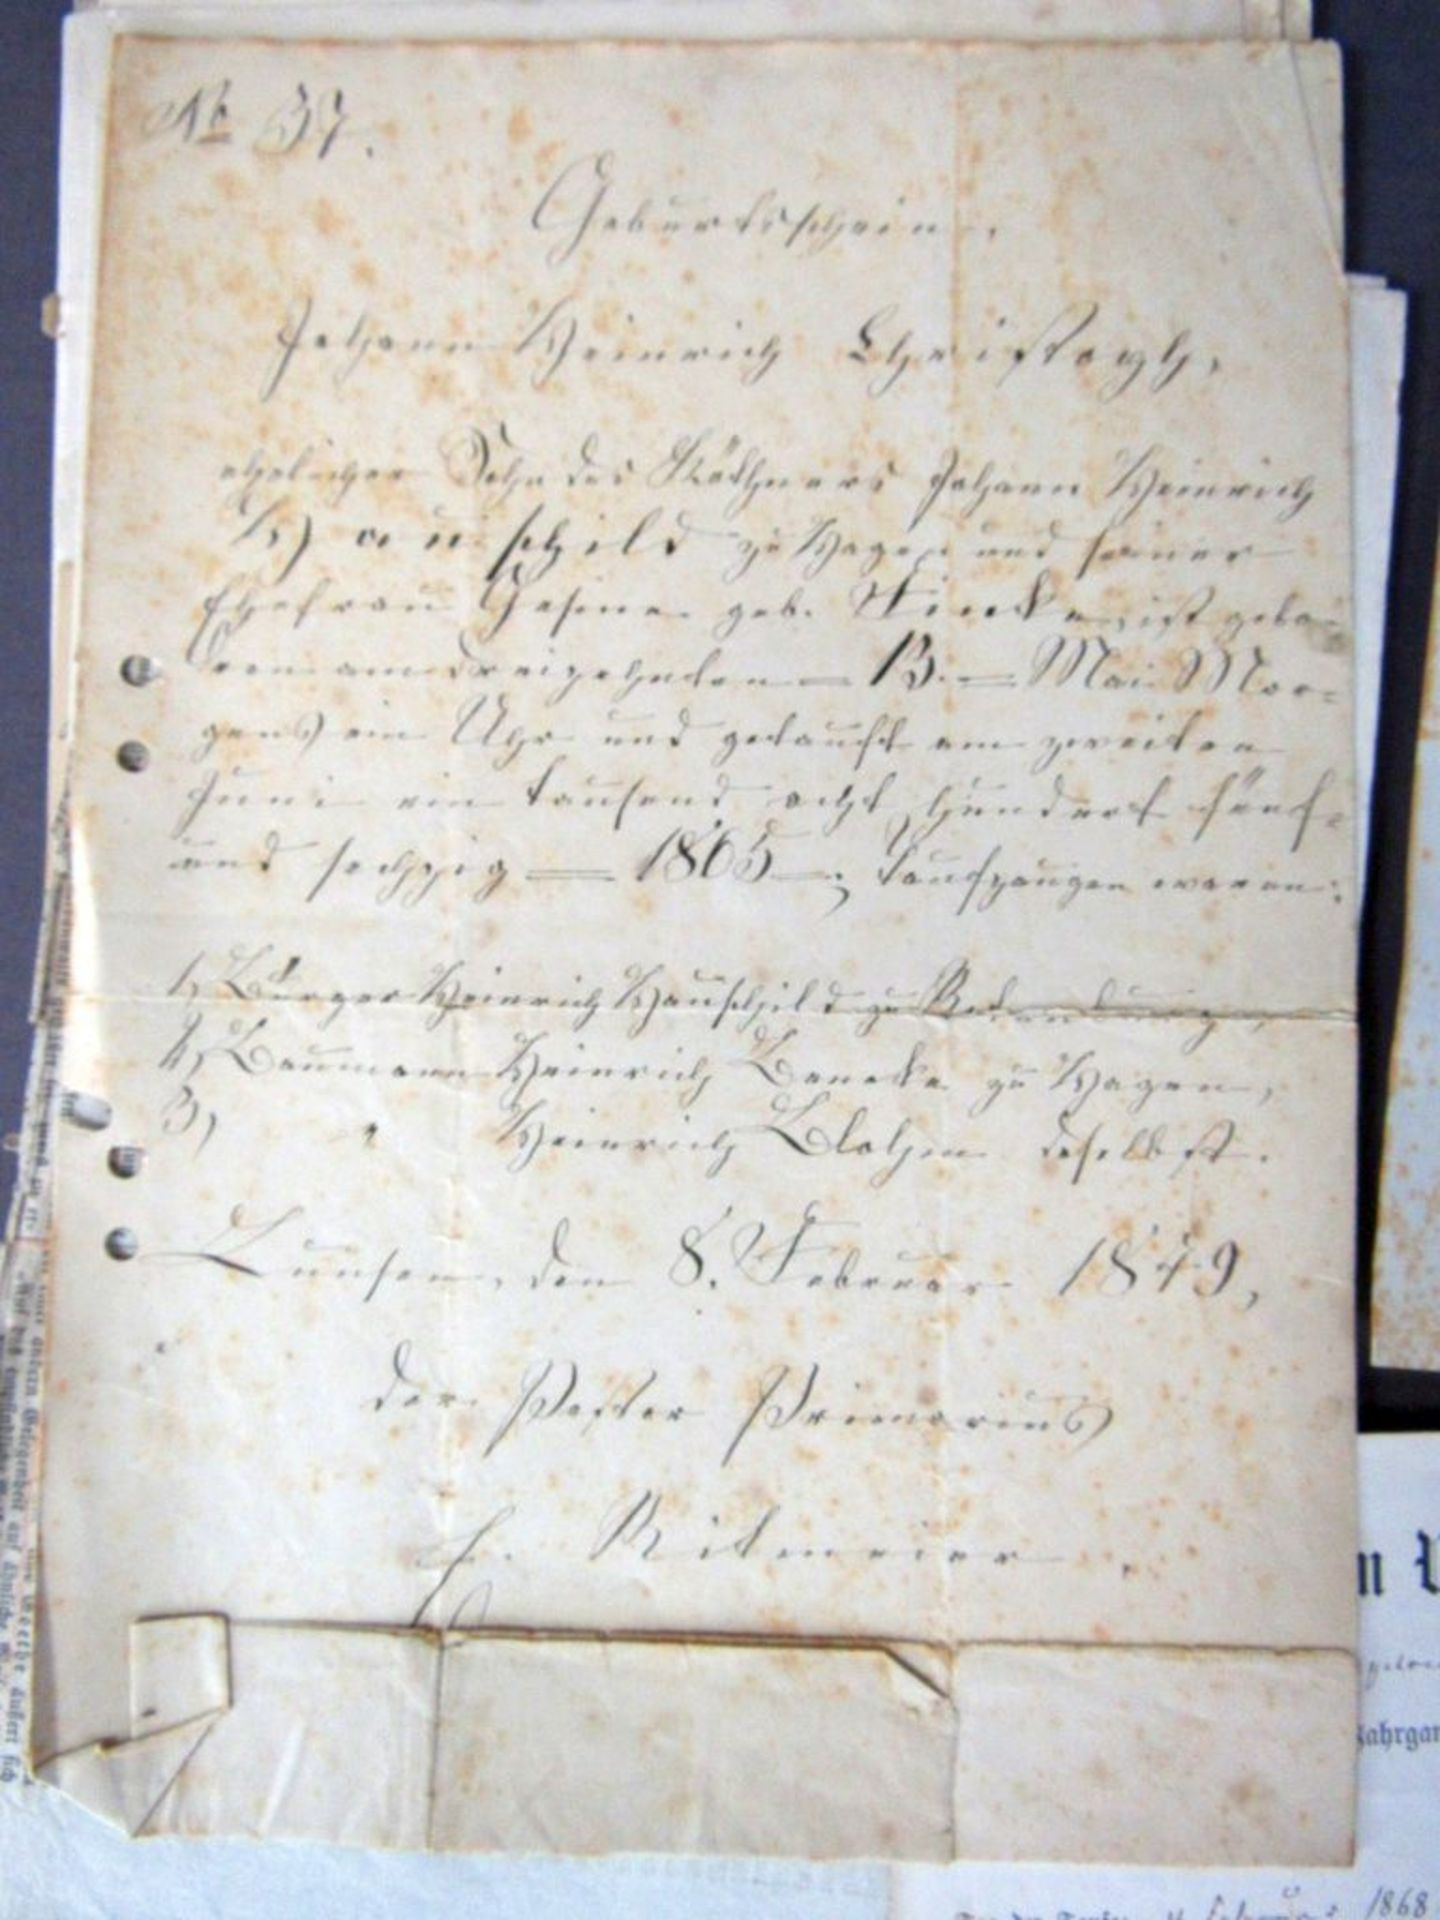 No 37.
Geburtsschein.
Johann Heinrich Christoph,
ehelicher Sohn des Köthners Johann Heinrich
Hauschild zu Hagen und seiner
Ehefrau Gesine geb. Fincke, ist gebo-
ren am dreizehnten = 13. = Mai Mor-
gens ein Uhr und getauft am zweiten
Juni ein tausend acht hundert fünf-
und sechzig = 1865 -; Taufzeugen waren:
1, Bürger Heinrich Hauschild zu
2, Baumann Heinrich Beneke zu Hagen,
3, " Heinrich Clohsen daselbst.
Lunsen, den 8. Februar 1879,
der Pastor Primarius
Ritmeier.
1868